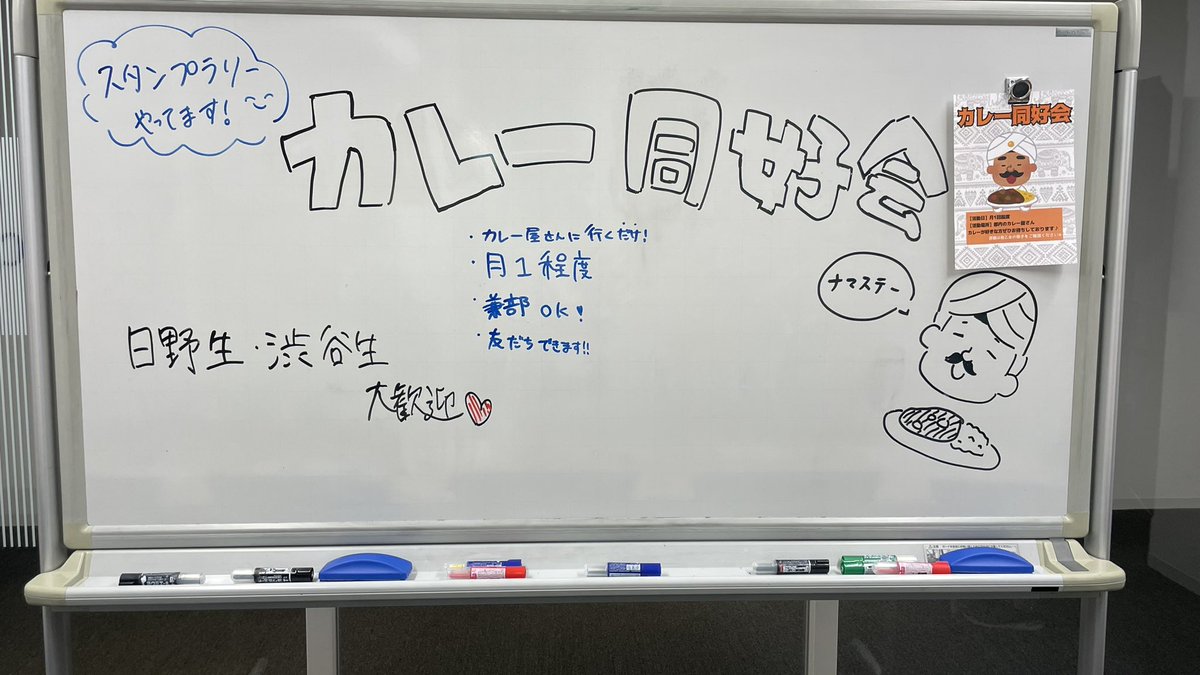 スタンプラリー
やってます!
カレー同好会
・カレー屋さんに行くだけ!
・月1程度
・兼部OK!
・友だちできます!!
日野生・渋谷生
大歓迎
ナマステー
カレー同好会
【活動日】月1回程度
【活動場所】都内のカレー屋さん
カレーが好きな方ぜひお待ちしております♪